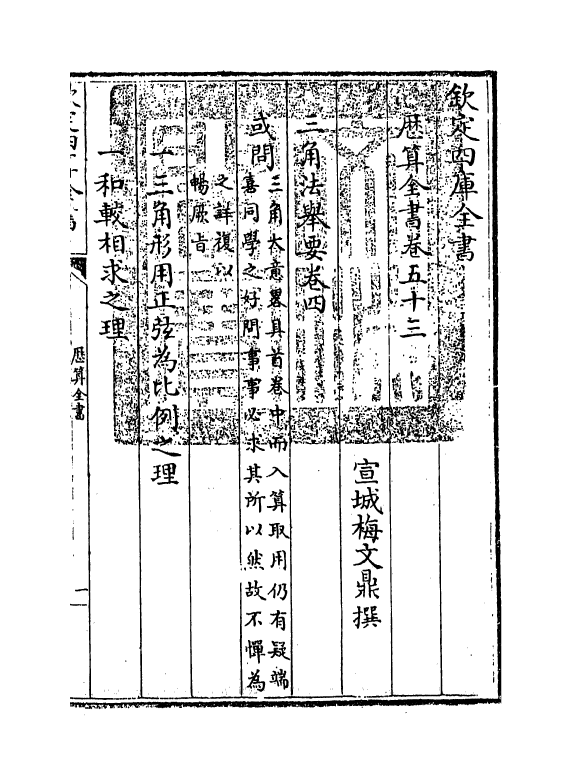 欽定四庫全書
厯算全書卷五十三
宣城梅文鼎撰
三角法舉要卷四
或問
三角大意畧具首卷中而入算取用仍有疑端
喜同學之好問事事必求其所以然故不憚為
之詳複以
暢厥旨
一三角形用正弦為比例之理
一和較相求之理
厯算全書